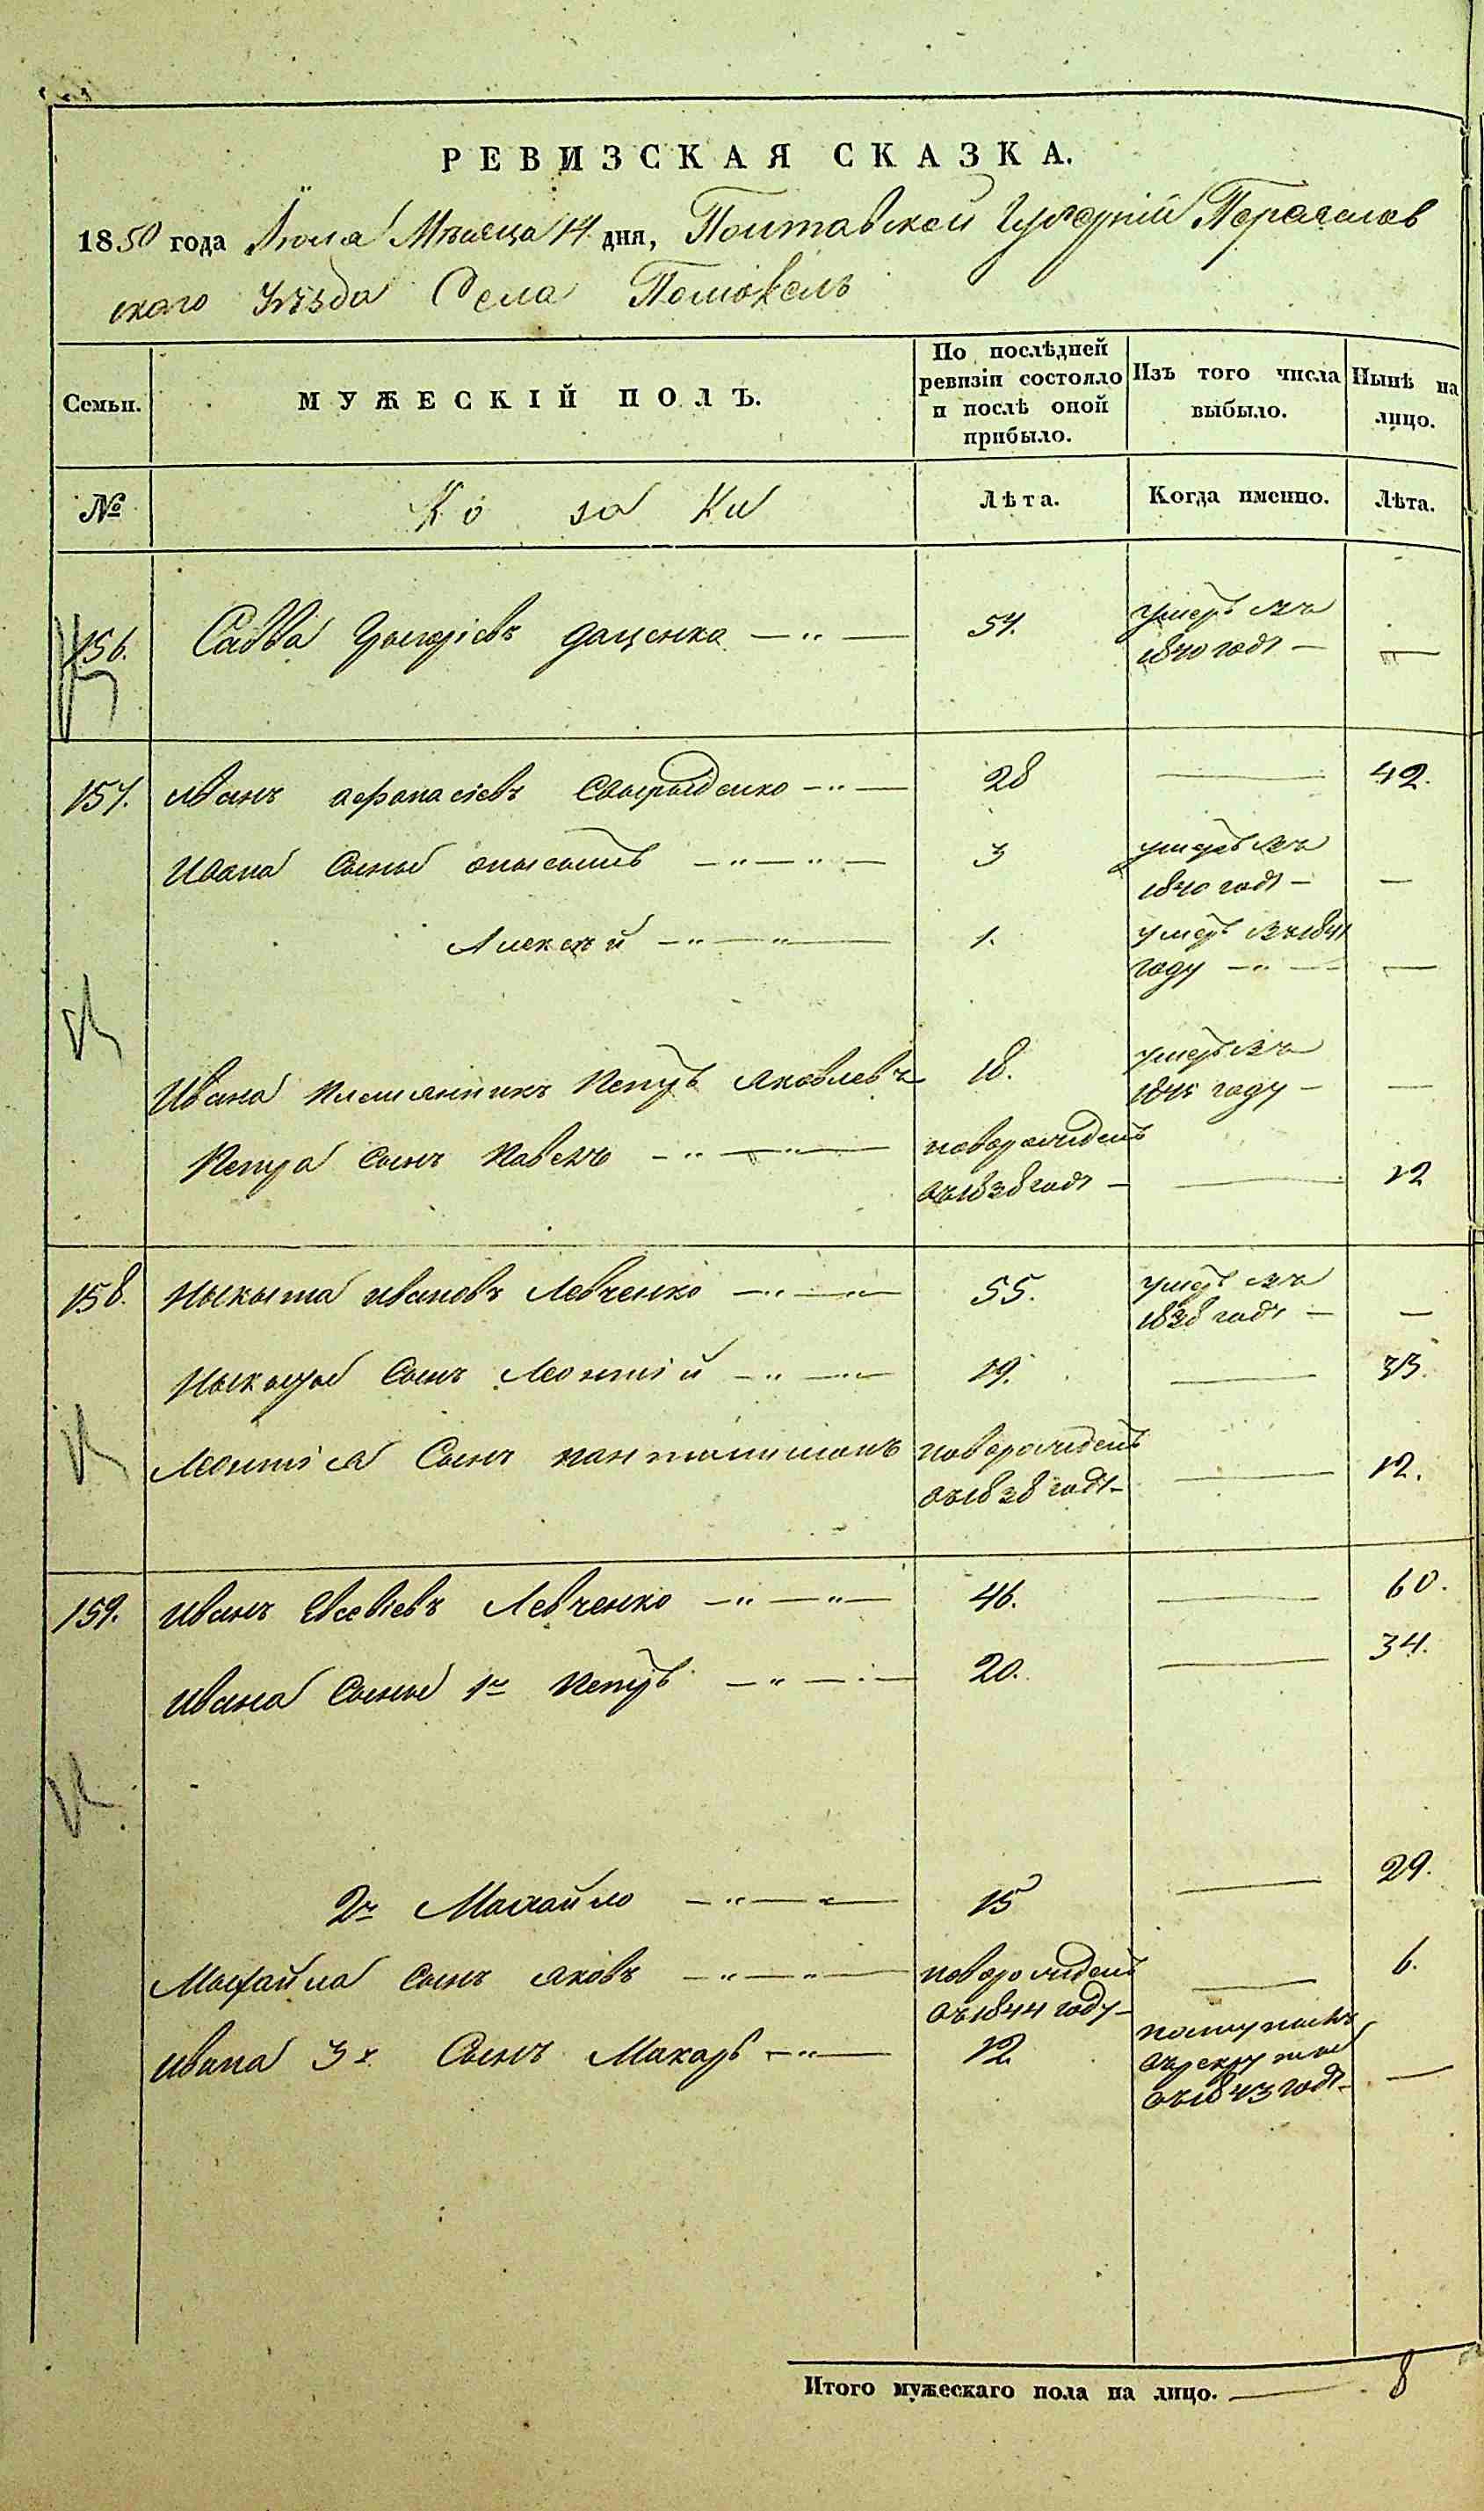 РЕВИЗСКАЯ СКАЗКА.
1850 года Июля Мѣсяца 14 дня, Полтавской Губерніи Переяслав
скаго Уѣзда Села Помокель
Семьи. МУЖЕСКІЙ ПОЛЪ. По послѣдней ревизіи состояло и послѣ оной прибыло. Изъ того числа выбыло. Нынѣ на лицо.
№ Козаки Лѣта. Когда именно. Лѣта.
156. Савва Григоріевъ Даценко — " — 57. умеръ въ
1840 годѣ — —
157. Иванъ Афанасіевъ Свириденко — " — 28 — 42.
Ивана сыны — " — " — 3 умеръ въ
1840 годѣ — —
Алексѣй — " — " — 1. умеръ въ 1841
году — " — —
Ивана племянникъ Петръ Яковлевъ 18. умеръ въ
году — —
Петра сынъ Павелъ — " — " — новорожденъ
въ 1838 годѣ — — 12
158. Ныкыта Ивановъ Левченко — " — " — 55. умеръ въ
1838 годѣ — —
Ныкыты сынъ Леонтій — " — " — 19. — 33.
Леонтія сынъ Пантелимонъ новорожденъ — 12.
въ 1838 годѣ —
159. Иванъ Евсевіевъ Левченко — " — " — 46. — 60.
Ивана сыны 1й Петръ — " — 20. — 34.
2й Михайло — " — " — 15 — 29.
Михайла сынъ Яковъ — " — " — новорожденъ — 6.
въ 1844 году —
Ивана 3й сынъ Макаръ — " — 12 поступилъ
въ рекруты
въ 1843 годѣ — —
Итого мужескаго пола на лицо. — 8